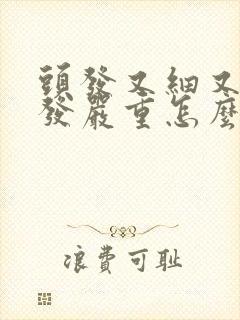 頭發又細又
發嚴重怎麼
浪費可耻